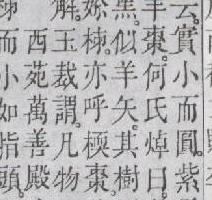 云實小而圓紫
羊棗何氏焯曰
黑似羊矢其樹
柹亦呼㮕棗
解玉裁謂凡物
西苑萬善殿
而小如指頭